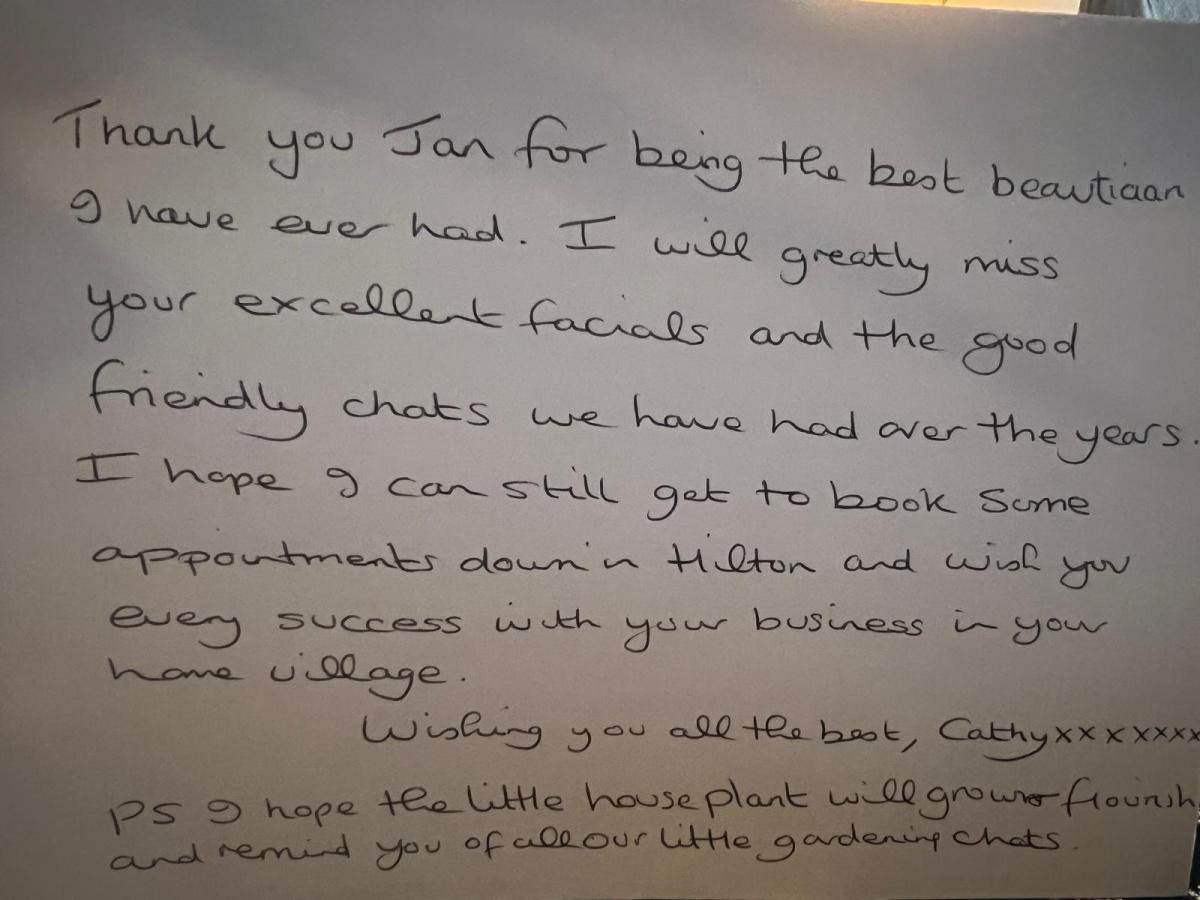 Thank you Jan for being the best beautiaan
I have ever had. I will greatly miss
your excellent facials and the good
friendly chats we have had over the years.
I hope I can still get to book some
appointments down in Hilton and wish you
every success with your business in your
home village.
Wishing you all the best, Cathy xxxxxxx
PS I hope the little house plant will grow + flourish
and remind you of all our little gardening chats.